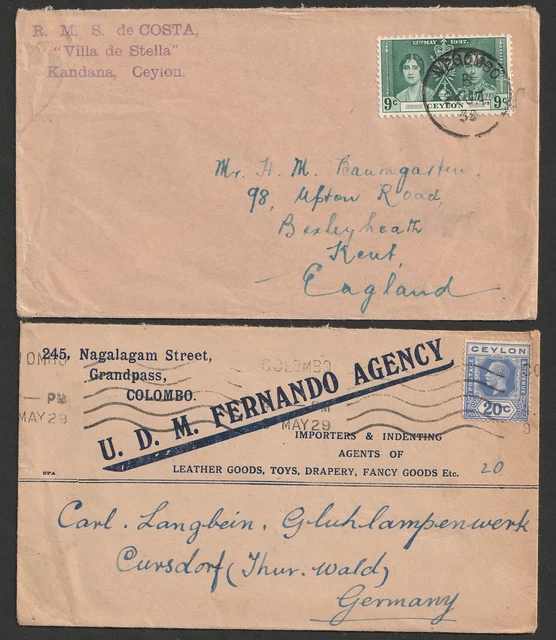 R. M. S. de COSTA,
"Villa de Stella"
Kandana, Ceylon.
12TH MAY 1937.
9c CEYLON 9c
NEGOMBO
38
Mr. H. M. Baumgarten.
98, Upton Road,
Bexleyheath
Kent,
England
245, Nagalagam Street,
Grandpass,
COLOMBO.
U. D. M. FERNANDO AGENCY
COLOMBO
PM
MAY 29
MAY 29
CEYLON
POSTAGE
20c
IMPORTERS & INDENTING
AGENTS OF
LEATHER GOODS, TOYS, DRAPERY, FANCY GOODS Etc.
20
Carl. Langbein. Gluhlampenwerk
Cursdorf (Thur. Wald)
Germany